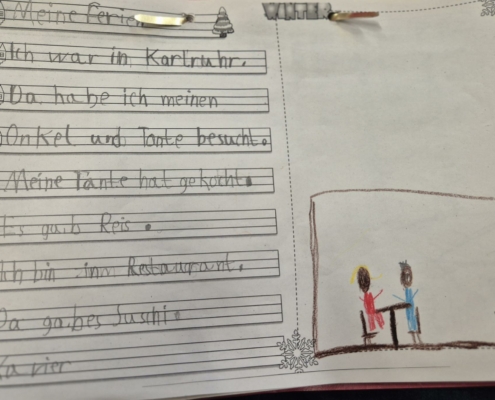 Meine Ferien
WINTER
Ich war in Karlruhr.
Da habe ich meinen
Onkel und Tante besucht.
Meine Tante hat gekocht.
Es gab Reis.
Ich bin inm Restaurant.
Da gab es Suschi.